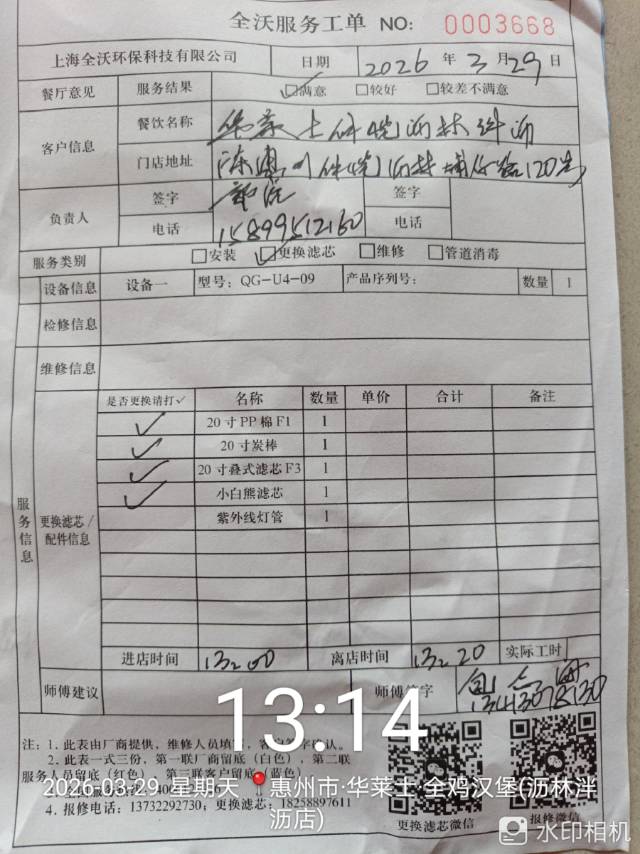 全沃服务工单 NO: 0003668
上海全沃环保科技有限公司 日期 2026 年 3 月 29 日
餐厅意见 服务结果 ☑满意 □较好 □较差不满意
客户信息 餐饮名称
门店地址
负责人 签字 签字
电话 15899512160 电话
服务类别 □安装 ☑更换滤芯 □维修 □管道消毒
设备信息 设备一 型号: QG-U4-09 产品序列号: 数量 1
检修信息
维修信息
服务信息
更换滤芯/配件信息
是否更换请打✓ 名称 数量 单价 合计 备注
✓ 20寸PP棉F1 1
✓ 20寸炭棒 1
✓ 20寸叠式滤芯F3 1
✓ 小白熊滤芯 1
紫外线灯管 1
进店时间 13:00 离店时间 13:20 实际工时
师傅建议 师傅签字
13:14
注: 1. 此表由厂商提供, 维修人员填写, 客户签字确认。
2. 此表一式三份, 第一联厂商留底 (白色), 第二联
服务人员留底 (红色), 第三联客户留底 (蓝色)
2026-03-29 星期天 惠州市·华莱士·全鸡汉堡(沥林泮沥店)
4. 报修电话: 13732292730; 更换滤芯: 18258897611
更换滤芯微信 报修微信
水印相机